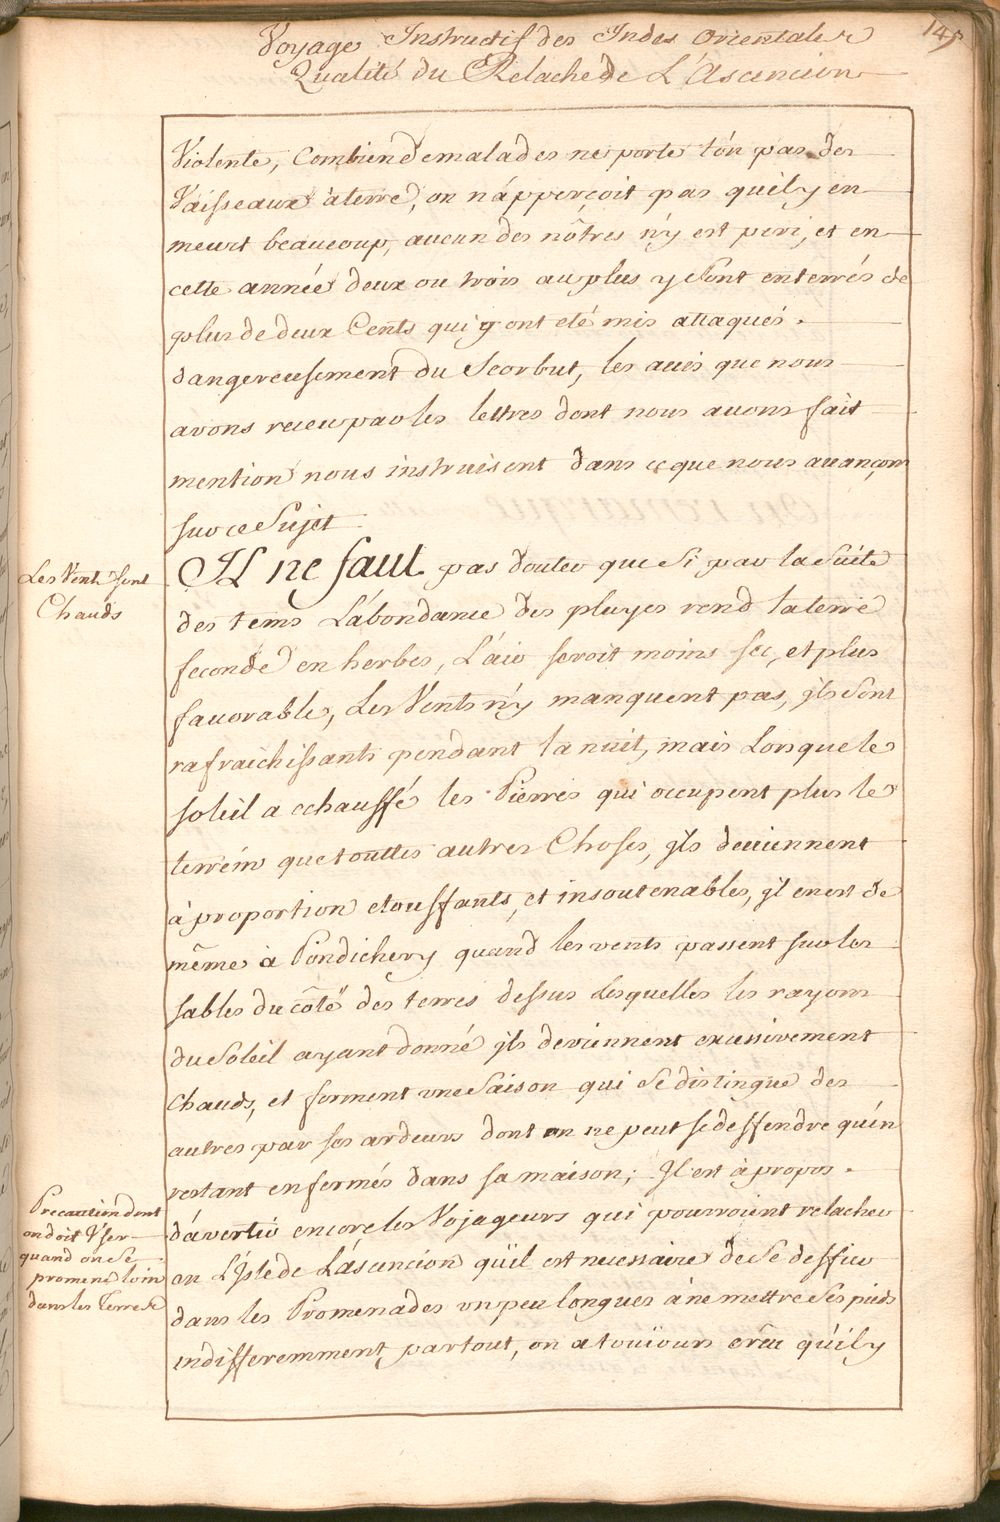 145
Voyage Instructif des Indes Orientales
Qualité du Relache de L'Ascencion
Violente, Combien de malades ne porte t'on pas des
Vaisseaux à terre, on n'apperçoit pas qu'il y en
meurt beaucoup, aucun des nôtres n'y est peri, et en
cette année deux ou trois au plus y sont enterrés de
plus de deux Cents qui y ont eté mis attaqués
dangereusement du Scorbut, les auis que nous
avons receu par les lettres dont nous auons fait
mention nous instruisent dans ce que nous auançons
sur ce Sujet
Les Vents sont
Chauds
Il ne faut pas douter que Si par la Suite
des tems L'abondance des pluyes rend la terre
feconde en herbes, L'air seroit moins sec, et plus
fauorable, Les Vents n'y manquent pas, jls Sont
rafraichissants pendant la nuit, mais Lorsque le
soleil a echauffé les Pierres qui occupent plus le
terrein que touttes autres Choses, jls deuiennent
à proportion etouffants, et insoutenables, jl en est de
même à Pondichery quand les vents passent sur les
sables du côté des terres dessus lesquelles les rayons
du Soleil ayant donné jls deviennent excessivement
chauds, et forment une Saison qui Se distingue des
autres par ses ardeurs dont on ne peut se deffendre qu'en
restant enfermés dans sa maison; Il est à propos
Precaution dont
on doit Vser
quand on Se
promene loin
dans les Terres
d'avertir encore les Vojageurs qui pourroient relacher
en L'Isle de L'ascencion qu'il est necessaire de Se deffier
dans les Promenades un peu longues à ne mettre Ses pieds
indifferemment partout, on a toujours crêu qu'il y